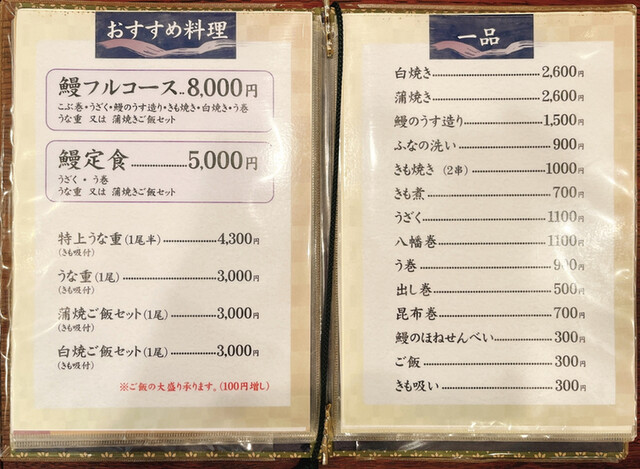 おすすめ料理
鰻フルコース..8,000円
こぶ巻・うざく・鰻のうす造り・きも焼き・白焼き・う巻
うな重 又は 蒲焼きご飯セット
鰻定食..................5,000円
うざく・う巻
うな重 又は 蒲焼きご飯セット
特上うな重(1尾半)............4,300円
(きも吸付)
うな重(1尾)......................3,000円
(きも吸付)
蒲焼ご飯セット(1尾)..........3,000円
(きも吸付)
白焼ご飯セット(1尾)..........3,000円
(きも吸付)
※ご飯の大盛り承ります。(100円増し)
一品
白焼き..............................2,600円
蒲焼き..............................2,600円
鰻のうす造り....................1,500円
ふなの洗い..........................900円
きも焼き(2串)...................1000円
きも煮................................700円
うざく................................1100円
八幡巻..............................1100円
う巻....................................900円
出し巻................................500円
昆布巻................................700円
鰻のほねせんべい................300円
ご飯....................................300円
きも吸い..............................300円